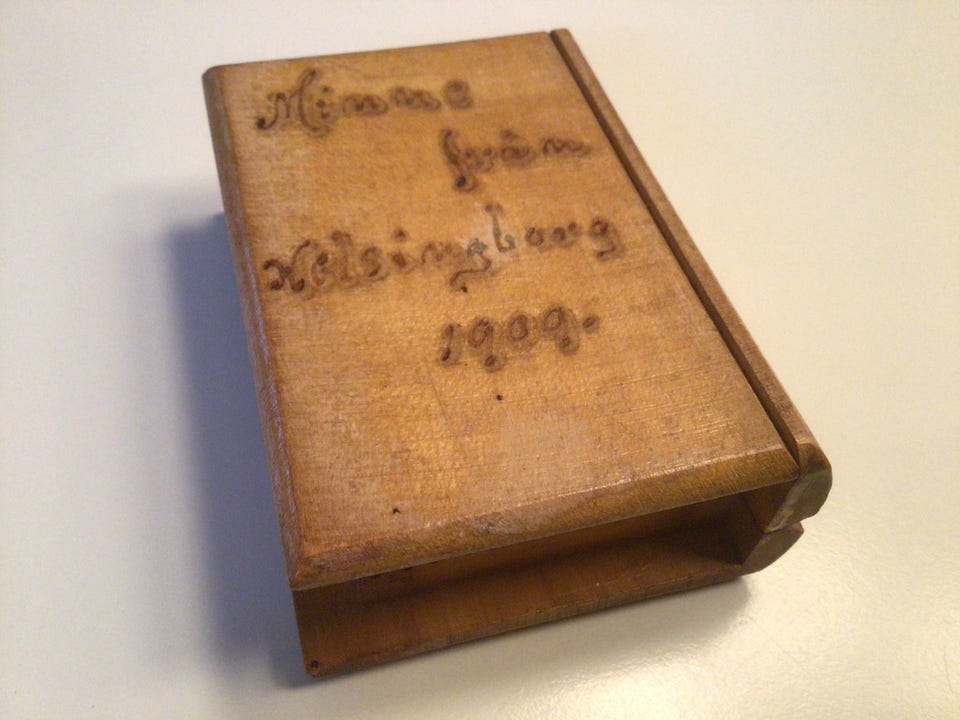 Minne
från
Helsingborg
1909.